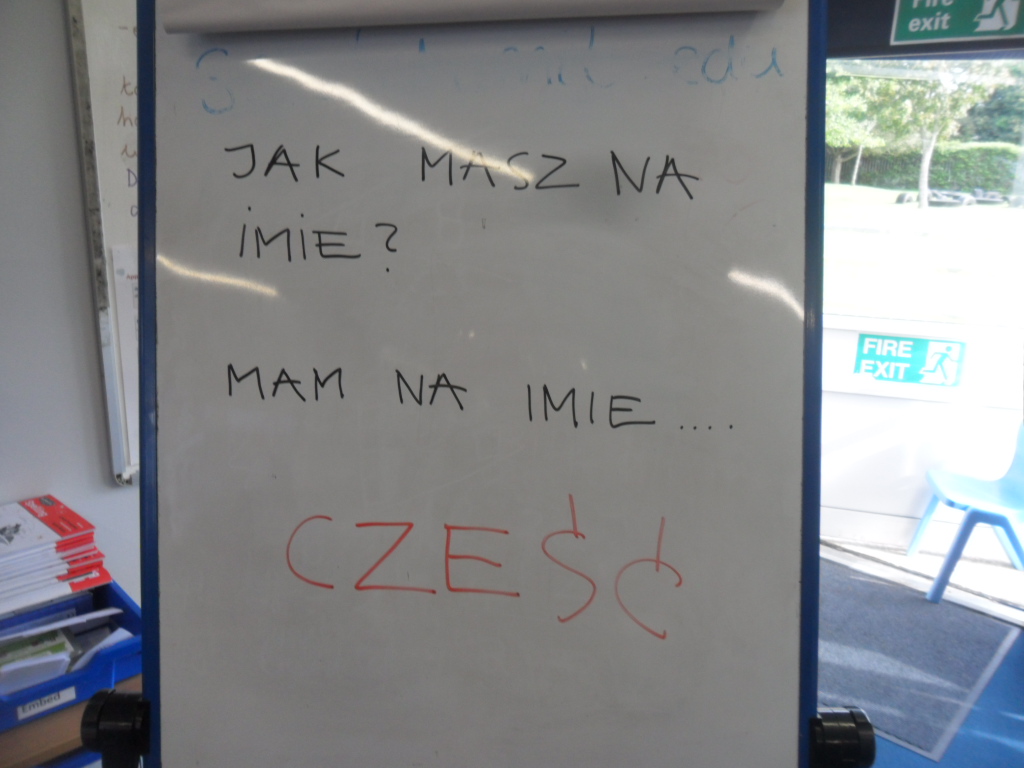 Fire
exit
JAK MASZ NA
IMIE?
MAM NA IMIE....
CZEŚĆ
FIRE
EXIT
Embed